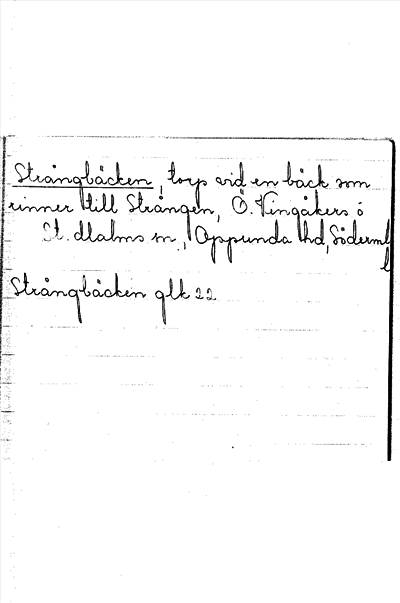 Strångbäcken, torp vid en bäck som
rinner till Strången, Ö. Vingåkers ö
St. dlalms sn, Oppunda hd, Söderml
l
Strångbäcken glk 22